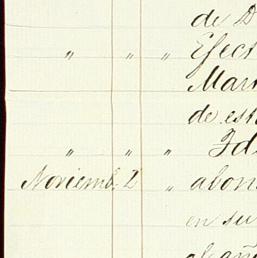 de D
" " " Efect
Mar
de est
" " " Id
Noviemb. 2 " abon
en su